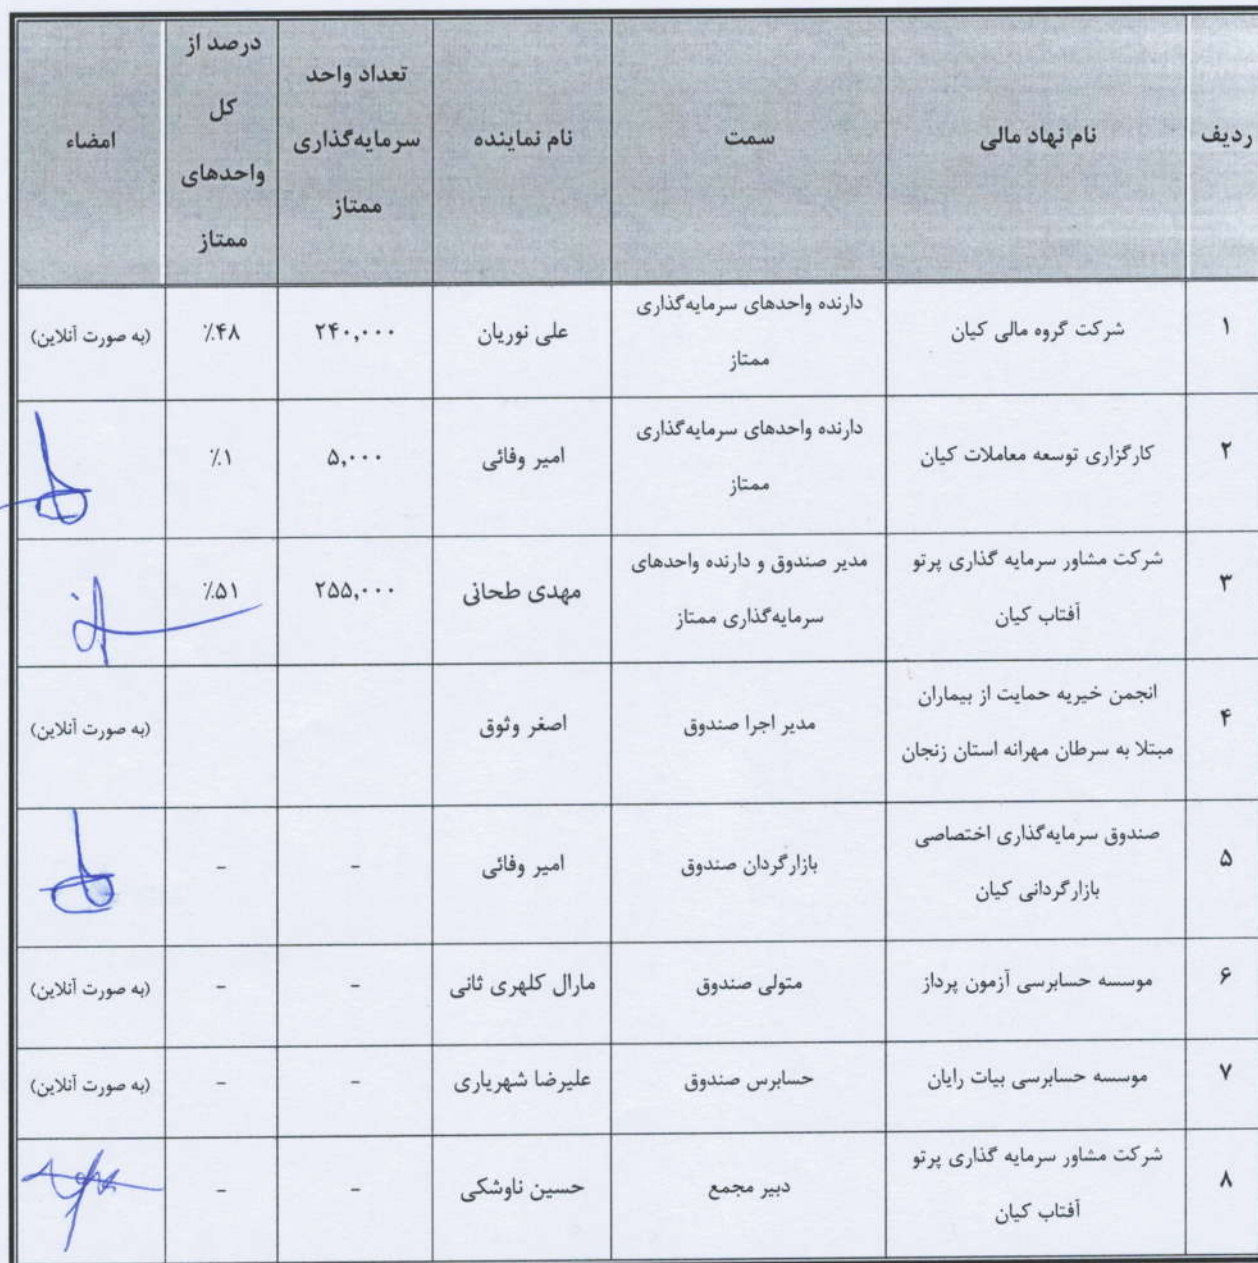 ردیف
نام نهاد مالی
سمت
نام نماینده
تعداد واحد
سرمایه‌گذاری
ممتاز
درصد از
کل
واحدهای
ممتاز
امضاء
۱
شرکت گروه مالی کیان
دارنده واحدهای سرمایه‌گذاری
ممتاز
علی نوریان
۲۴۰,۰۰۰
٪۴۸
(به صورت آنلاین)
۲
کارگزاری توسعه معاملات کیان
دارنده واحدهای سرمایه‌گذاری
ممتاز
امیر وفائی
۵,۰۰۰
٪۱
۳
شرکت مشاور سرمایه گذاری پرتو
آفتاب کیان
مدیر صندوق و دارنده واحدهای
سرمایه‌گذاری ممتاز
مهدی طحانی
۲۵۵,۰۰۰
٪۵۱
۴
انجمن خیریه حمایت از بیماران
مبتلا به سرطان مهرانه استان زنجان
مدیر اجرا صندوق
اصغر وثوق
(به صورت آنلاین)
۵
صندوق سرمایه‌گذاری اختصاصی
بازارگردانی کیان
بازارگردان صندوق
امیر وفائی
-
-
۶
موسسه حسابرسی آزمون پرداز
متولی صندوق
مارال کلهری ثانی
-
-
(به صورت آنلاین)
۷
موسسه حسابرسی بیات رایان
حسابرس صندوق
علیرضا شهریاری
-
-
(به صورت آنلاین)
۸
شرکت مشاور سرمایه گذاری پرتو
آفتاب کیان
دبیر مجمع
حسین ناوشکی
-
-